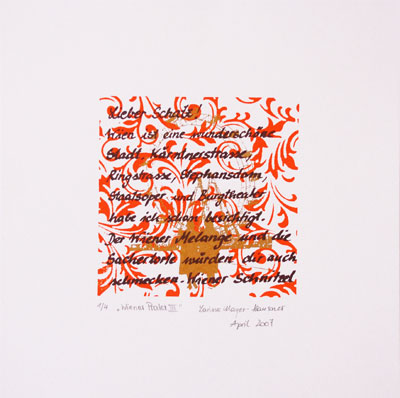 Lieber Schatz!
Wien ist eine wunderschöne
Stadt, Kärntnerstrasse,
Ringstrasse, Stephansdom,
Staatsoper und Burgtheater
habe ich schon besichtigt.
Der Wiener Melange und die
Sachertorte würden dir auch
schmecken. Wiener Schnitzel
1/4 „Wiener Prater III"
April 2007